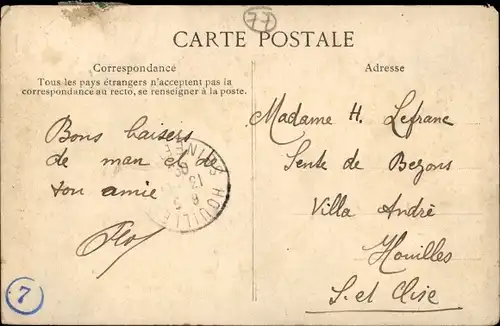 77
CARTE POSTALE
Correspondance
Tous les pays étrangers n'acceptent pas la
correspondance au recto, se renseigner à la poste.
Bons baisers
de man et de
ton amie
Adresse
Madame H. Lefranc
Sente de Bezons
Villa André
Houilles
S. et Oise
HOUILLES
7